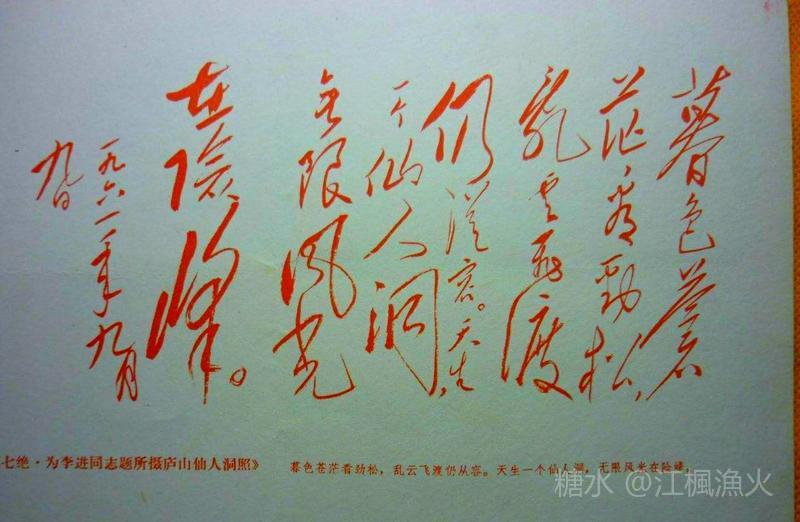 暮色蒼
茫看勁松，
亂云飛渡
仍從容。天生
一个仙人洞，
无限風光
在險峰。
一九六一年九月
九日
七绝·为李进同志题所摄庐山仙人洞照》
暮色苍茫看劲松，乱云飞渡仍从容。天生一个仙人洞，无限风光在险峰。
糖水 @江楓漁火